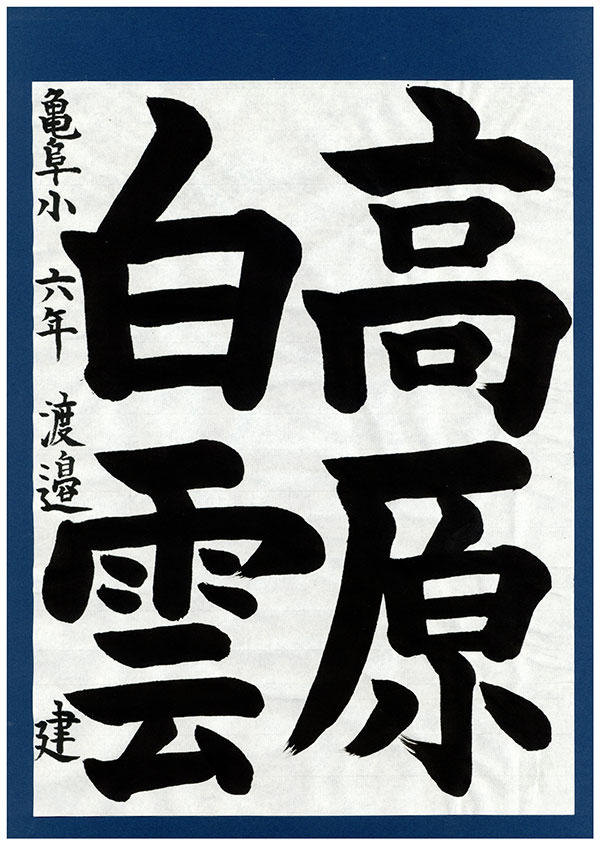 高原
白雲
亀阜小 六年 渡邉 建